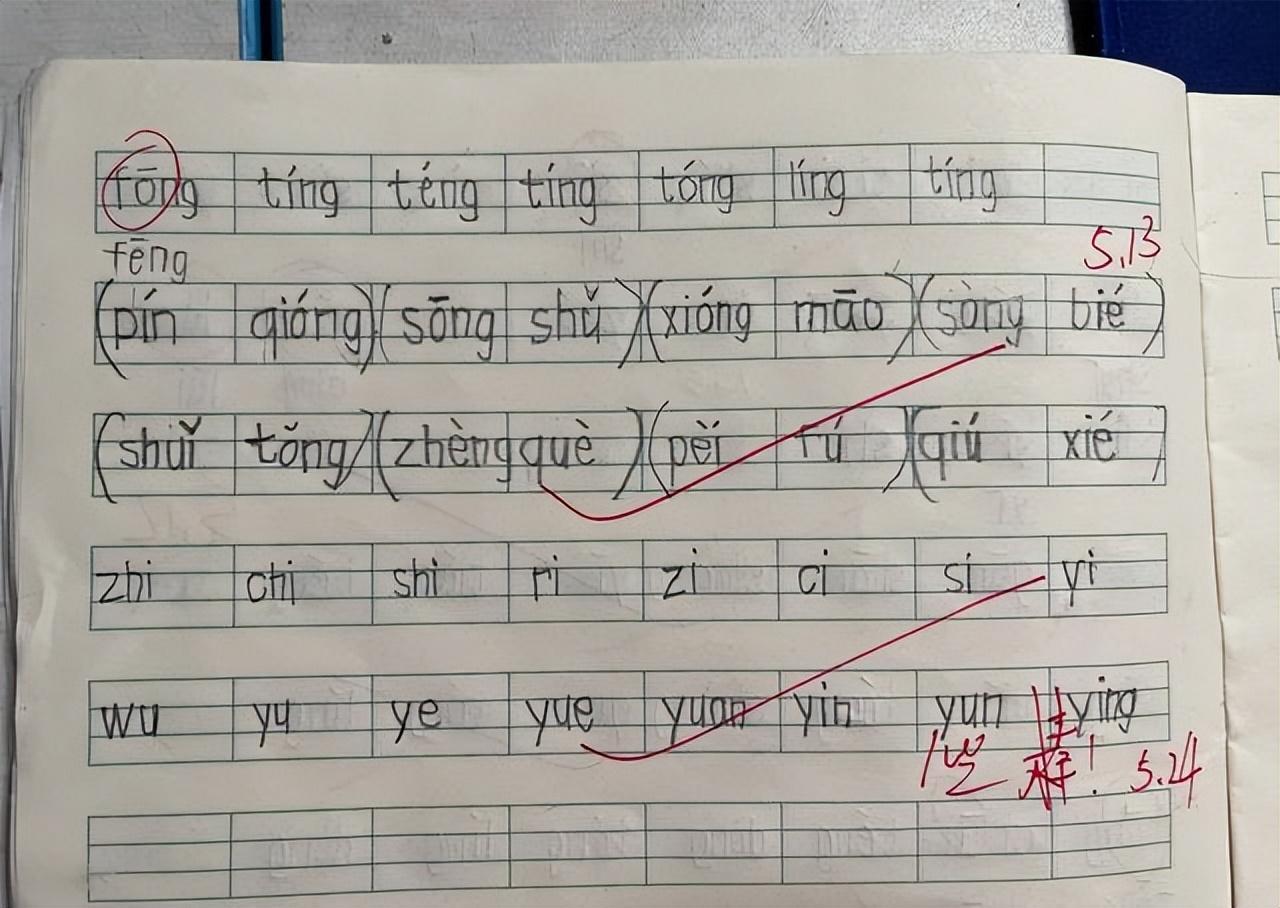 fōng tíng téng tíng tóng líng tíng
fēng 5.13
(pín qióng)(sōng shǔ)(xióng māo)(sòng bié)
(shuǐ tǒng)(zhèng què)(pèi fú)(qiú xié)
zhi chi shi ri zi ci si yi
wu yu ye yue yuan yin yun ying
5.24